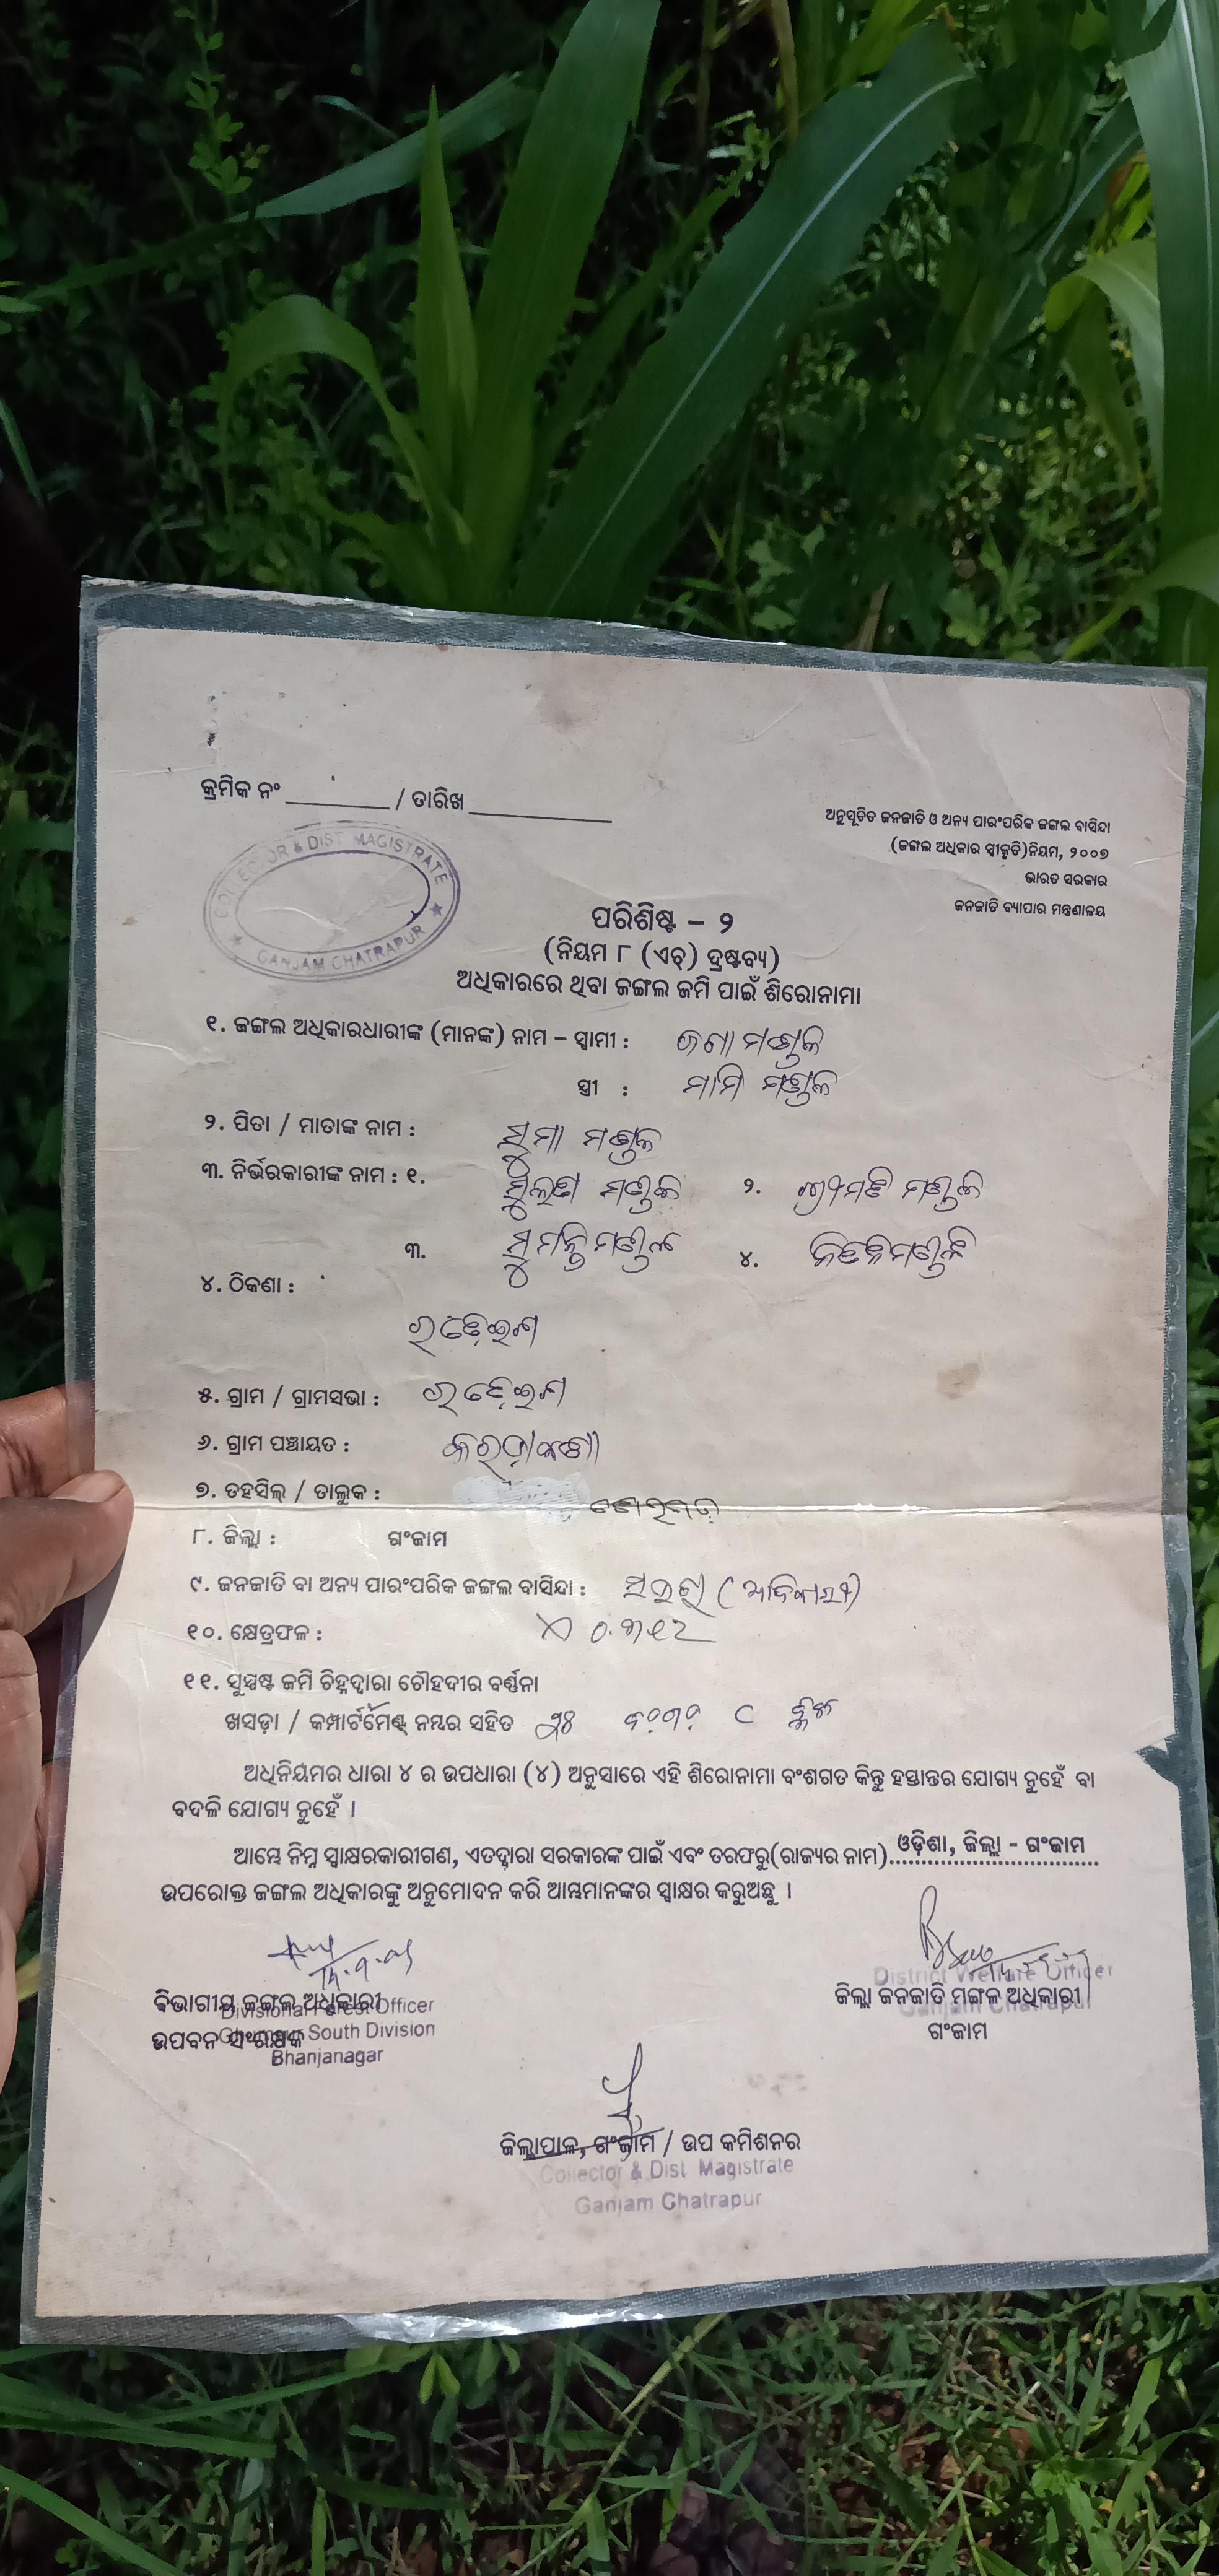 କ୍ରମିକ ନଂ ________ / ତାରିଖ ____________
ଅନୁସୂଚିତ ଜନଜାତି ଓ ଅନ୍ୟ ପାରଂପରିକ ଜଙ୍ଗଲ ବାସିନ୍ଦା
(ଜଙ୍ଗଲ ଅଧିକାର ସ୍ୱୀକୃତି)ନିୟମ, ୨୦୦୭
ଭାରତ ସରକାର
ଜନଜାତି ବ୍ୟାପାର ମନ୍ତ୍ରଣାଳୟ
COLLECTOR & DIST MAGISTRATE
GANJAM CHATRAPUR
ପରିଶିଷ୍ଟ – ୨
(ନିୟମ ୮ (ଏଚ୍) ଦ୍ରଷ୍ଟବ୍ୟ)
ଅଧିକାରରେ ଥିବା ଜଙ୍ଗଲ ଜମି ପାଇଁ ଶିରୋନାମା
୧. ଜଙ୍ଗଲ ଅଧିକାରଧାରୀଙ୍କ (ମାନଙ୍କ) ନାମ – ସ୍ୱାମୀ : ମଣ୍ଡଳ
ସ୍ତ୍ରୀ : ମାମି ମଣ୍ଡଳ
୨. ପିତା / ମାତାଙ୍କ ନାମ : ସୁମା ମଣ୍ଡଳ
୩. ନିର୍ଭରକାରୀଙ୍କ ନାମ : ୧. ମଣ୍ଡଳ ୨. ମଣ୍ଡଳ
୩. ସୁମନ୍ତି ମଣ୍ଡଳ ୪.
୪. ଠିକଣା :
୫. ଗ୍ରାମ / ଗ୍ରାମସଭା :
୬. ଗ୍ରାମ ପଞ୍ଚାୟତ :
୭. ତହସିଲ୍ / ତାଲୁକ :
୮. ଜିଲ୍ଲା : ଗଂଜାମ
୯. ଜନଜାତି ବା ଅନ୍ୟ ପାରଂପରିକ ଜଙ୍ଗଲ ବାସିନ୍ଦା :
୧୦. କ୍ଷେତ୍ରଫଳ :
୧୧. ସୁସ୍ପଷ୍ଟ ଜମି ଚିହ୍ନଦ୍ୱାରା ଚୌହଦୀର ବର୍ଣ୍ଣନା
ଖସଡ଼ା / କମ୍ପାର୍ଟମେଣ୍ଟ୍ ନମ୍ଭର ସହିତ
ଅଧିନିୟମର ଧାରା ୪ ର ଉପଧାରା (୪) ଅନୁସାରେ ଏହି ଶିରୋନାମା ବଂଶଗତ କିନ୍ତୁ ହସ୍ତାନ୍ତର ଯୋଗ୍ୟ ନୁହେଁ ବା
ବଦଳି ଯୋଗ୍ୟ ନୁହେଁ ।
ଆମ୍ଭେ ନିମ୍ନ ସ୍ୱାକ୍ଷରକାରୀଗଣ, ଏତଦ୍ୱାରା ସରକାରଙ୍କ ପାଇଁ ଏବଂ ତରଫରୁ(ରାଜ୍ୟର ନାମ) ଓଡ଼ିଶା, ଜିଲ୍ଲା - ଗଂଜାମ
ଉପରୋକ୍ତ ଜଙ୍ଗଲ ଅଧିକାରଙ୍କୁ ଅନୁମୋଦନ କରି ଆମ୍ଭମାନଙ୍କର ସ୍ୱାକ୍ଷର କରୁଅଛୁ ।
ବିଭାଗୀୟ ଜଙ୍ଗଲ ଅଧିକାରୀ
Divisional Forest Officer
ଉପବନ ସଂରକ୍ଷକ
Ghumsur South Division
Bhanjanagar
District Welfare Officer
ଜିଲ୍ଲା ଜନଜାତି ମଙ୍ଗଳ ଅଧିକାରୀ
Ganjam Chatrapur
ଗଂଜାମ
ଜିଲ୍ଲାପାଳ, ଗଂଜାମ / ଉପ କମିଶନର
Collector & Dist Magistrate
Ganjam Chatrapur